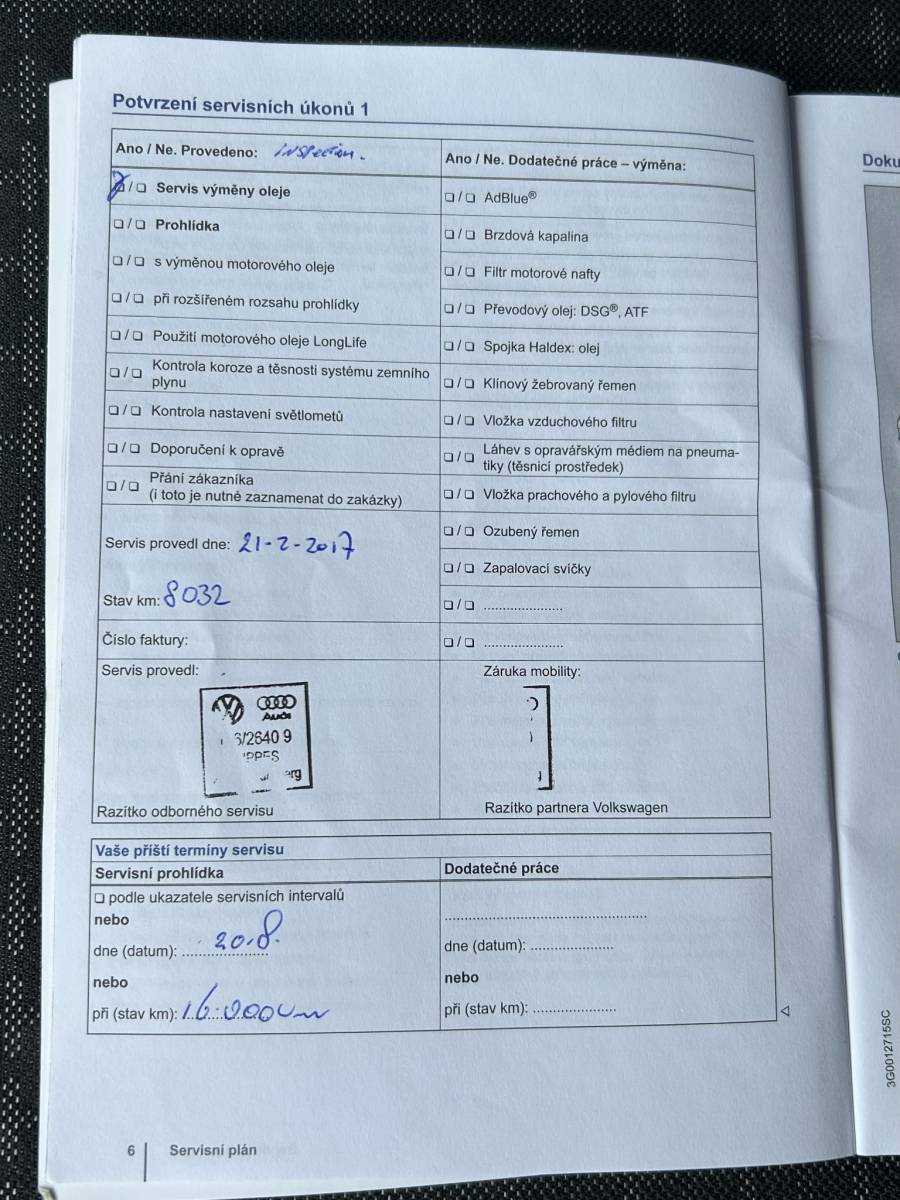 Potvrzení servisních úkonů 1
Ano / Ne. Provedeno: inspection.
❏ / ❏ Servis výměny oleje
❏ / ❏ Prohlídka
❏ / ❏ s výměnou motorového oleje
❏ / ❏ při rozšířeném rozsahu prohlídky
❏ / ❏ Použití motorového oleje LongLife
❏ / ❏ Kontrola koroze a těsnosti systému zemního
plynu
❏ / ❏ Kontrola nastavení světlometů
❏ / ❏ Doporučení k opravě
❏ / ❏ Přání zákazníka
(i toto je nutné zaznamenat do zakázky)
Servis provedl dne: 21-2-2017
Stav km: 8032
Číslo faktury:
Servis provedl:
Audi
6/2640 9
Razítko odborného servisu
Ano / Ne. Dodatečné práce – výměna:
❏ / ❏ AdBlue®
❏ / ❏ Brzdová kapalina
❏ / ❏ Filtr motorové nafty
❏ / ❏ Převodový olej: DSG®, ATF
❏ / ❏ Spojka Haldex: olej
❏ / ❏ Klínový žebrovaný řemen
❏ / ❏ Vložka vzduchového filtru
❏ / ❏ Láhev s opravářským médiem na pneuma-
tiky (těsnicí prostředek)
❏ / ❏ Vložka prachového a pylového filtru
❏ / ❏ Ozubený řemen
❏ / ❏ Zapalovací svíčky
❏ / ❏ .....................
❏ / ❏ .....................
Záruka mobility:
Razítko partnera Volkswagen
Vaše příští termíny servisu
Servisní prohlídka
❏ podle ukazatele servisních intervalů
nebo
dne (datum): 20.8.
nebo
při (stav km): 16.000 km
Dodatečné práce
.....................................................
dne (datum): .....................
nebo
při (stav km): .....................
6 Servisní plán
Doku
3G0012715SC